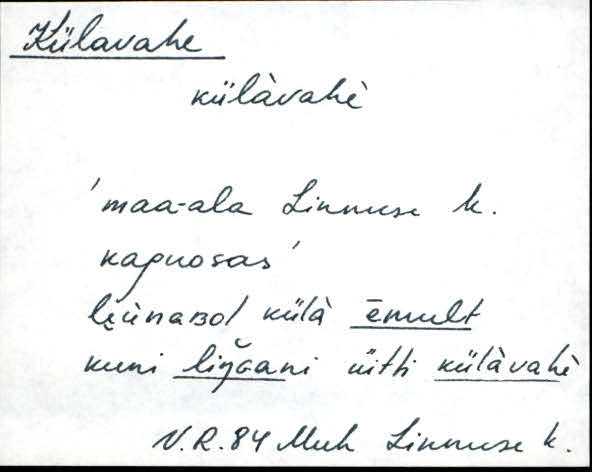 Külavahe
külàvahè
'maa-ala Linnuse k.
kagnosas'
külà ēmult
kuni üitti külàvahè
V.R. 84 Muh Linnuse k.